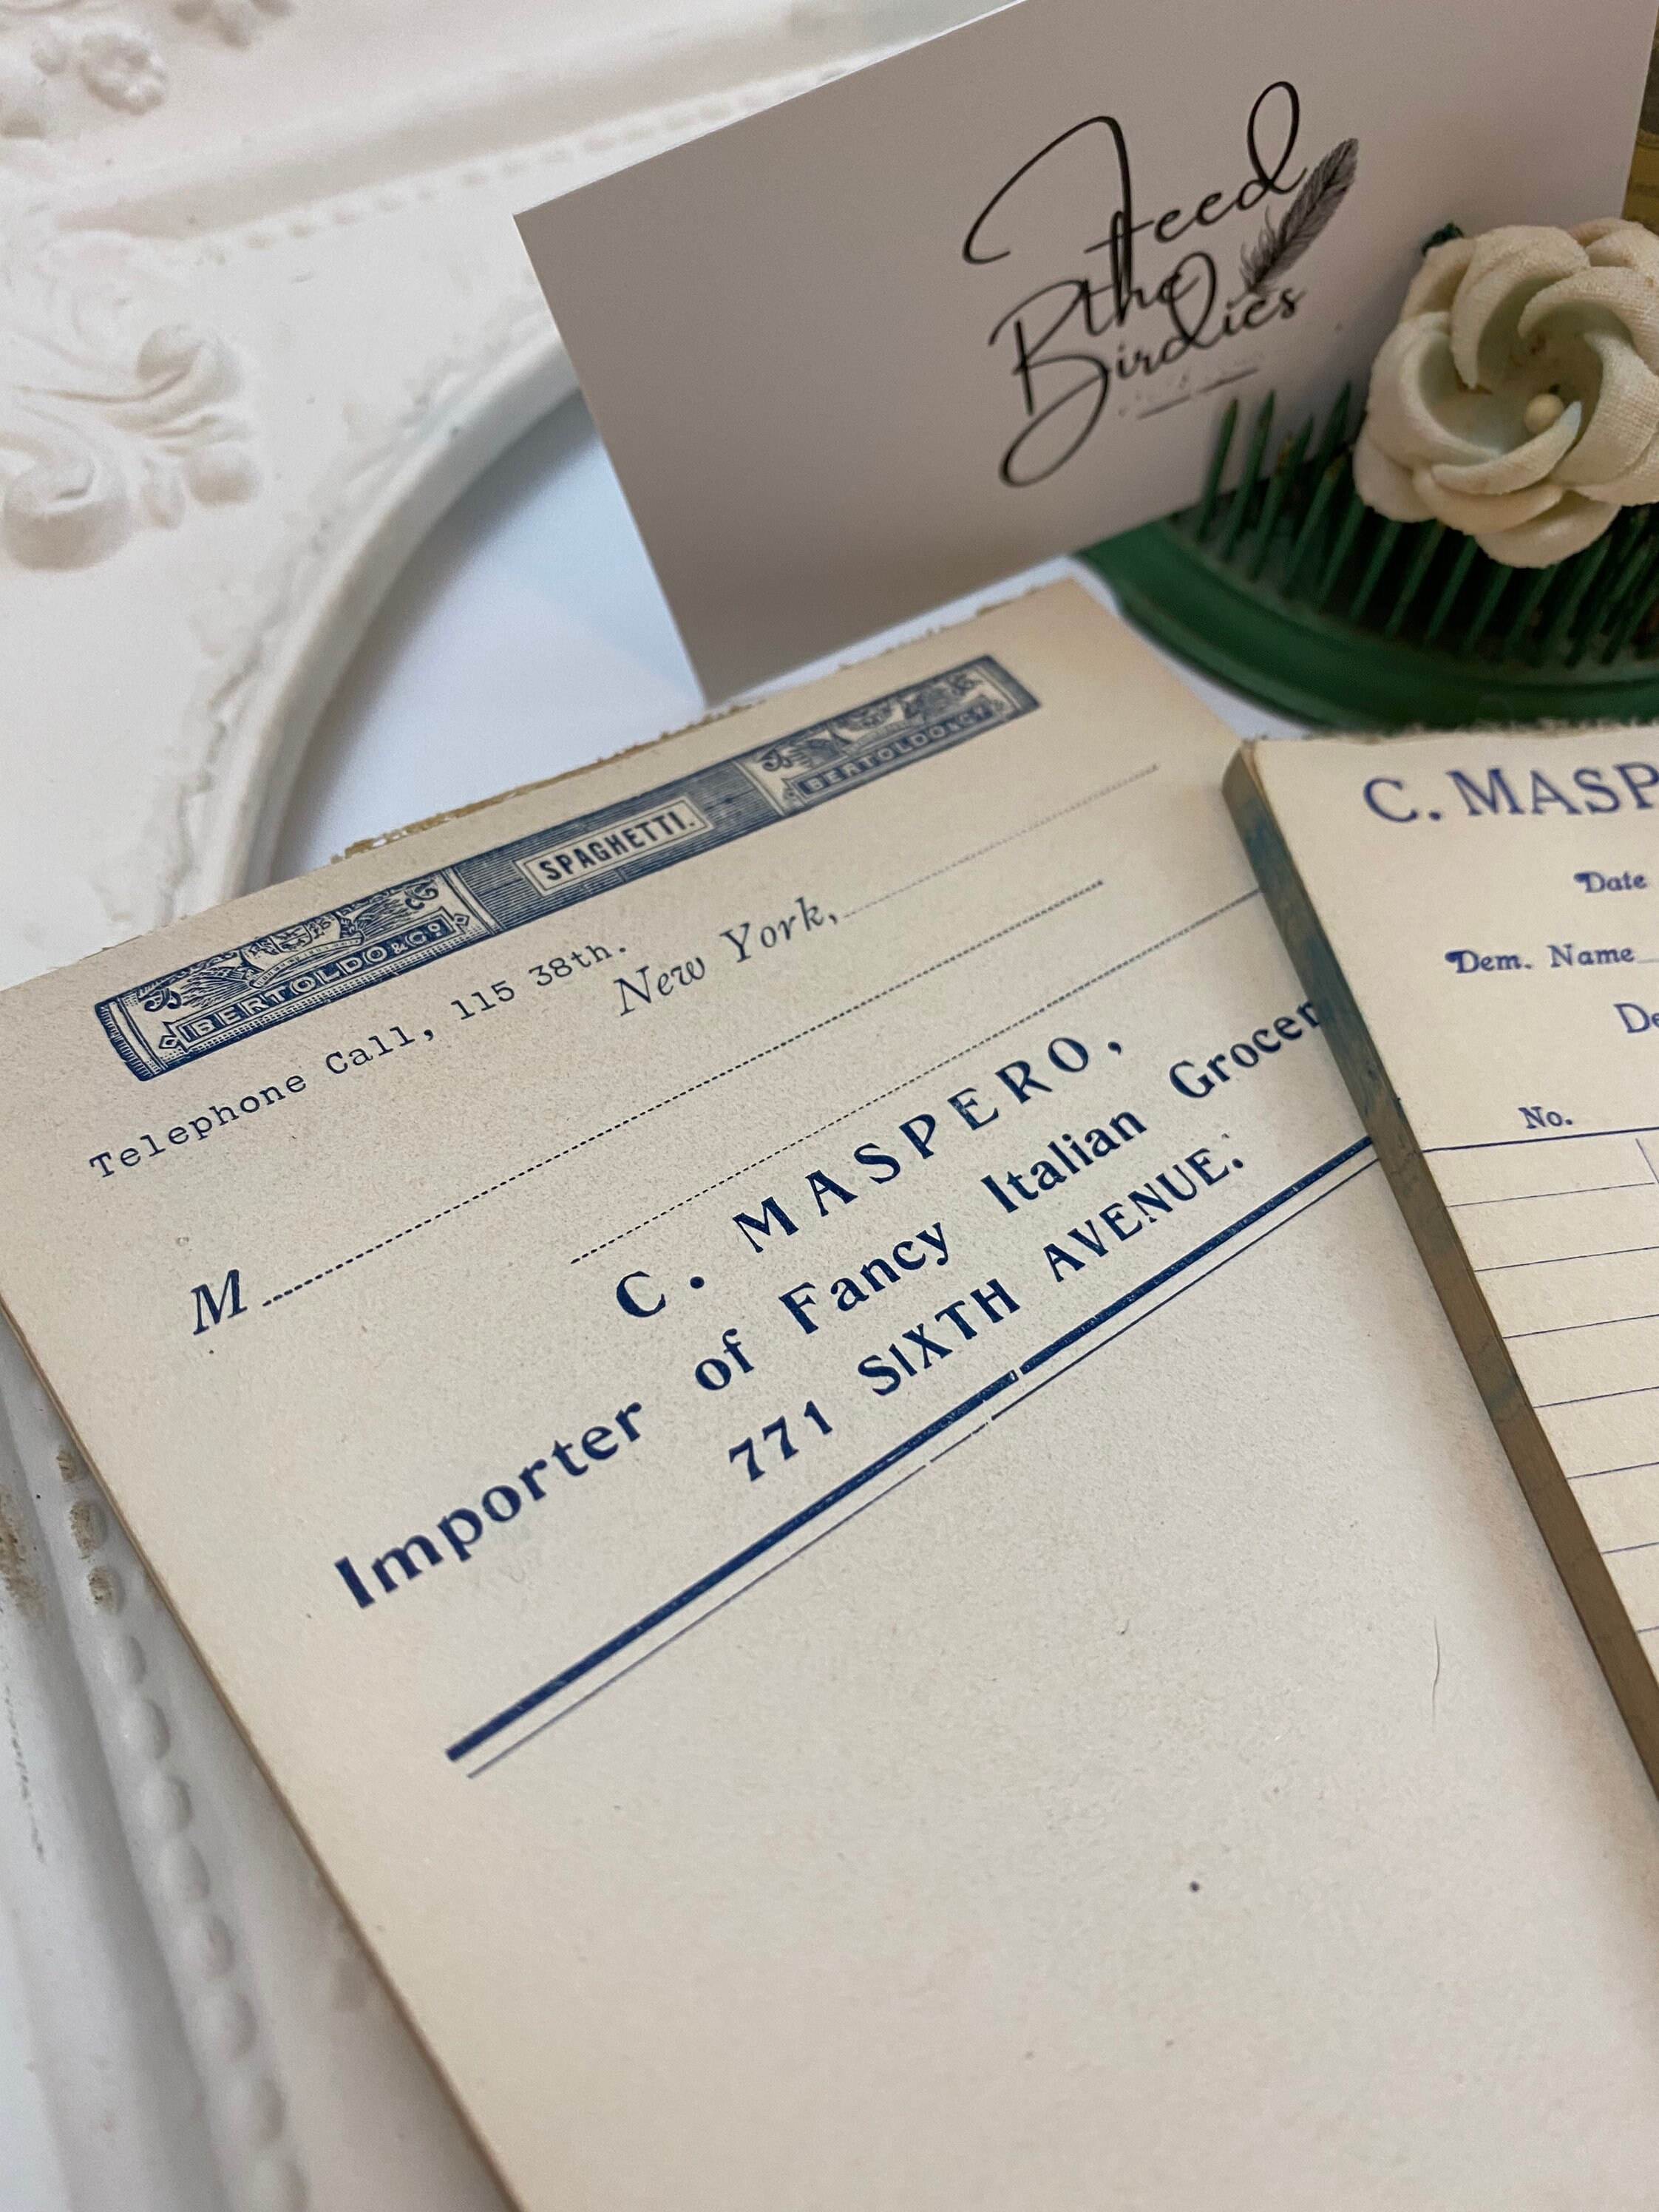 Feed
the
Birdies
BERTOLDO & CO SPAGHETTI. BERTOLDO & CO
Telephone Call, 115 38th.
New York,
M
C. MASPERO,
Importer of Fancy Italian Grocer
771 SIXTH AVENUE.
C. MASP
Date
Dem. Name
De
No.